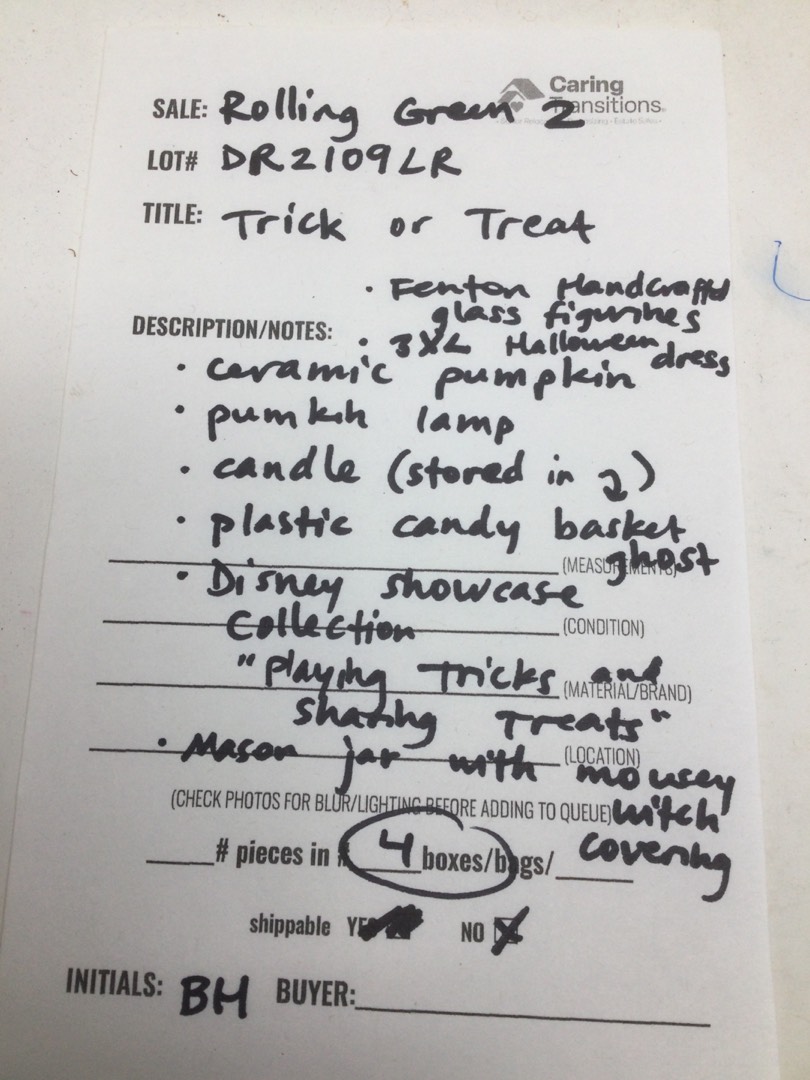 Caring
Transitions
SALE: Rolling Green 2
LOT# DR2109LR
TITLE: Trick or Treat
• Fenton Handcrafted
glass figurines
DESCRIPTION/NOTES: • 3XL Halloween dress
• ceramic pumpkin
• pumkin lamp
• candle (stored in 2)
• plastic candy basket
ghost
(MEASUREMENTS)
• Disney showcase
Collection
(CONDITION)
"Playing Tricks and
(MATERIAL/BRAND)
Sharing Treats"
• Mason jar with mousey
(LOCATION)
(CHECK PHOTOS FOR BLUR/LIGHTING BEFORE ADDING TO QUEUE) witch
covering
# pieces in # 4 boxes/bags/
shippable YES NO
INITIALS: BH BUYER: